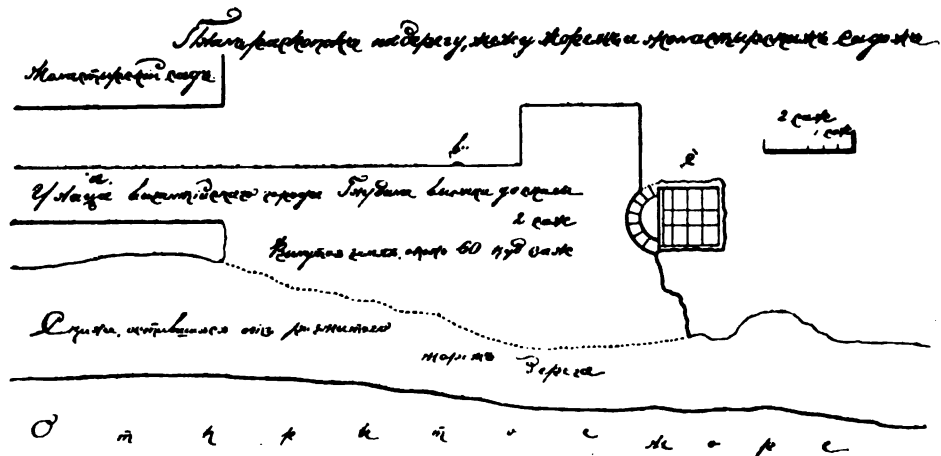 Планъ раскопокъ на берегу, межу моремъ и монастырскимъ садомъ
Монастырскій садъ
2 саж
саж
в.
а.
Улица византійскаго города Глубина выемки до скалы
2 саж
Вынутая земля, около 60 куб саж
оставшаяся отъ размытаго
моремъ берега
Открытое море